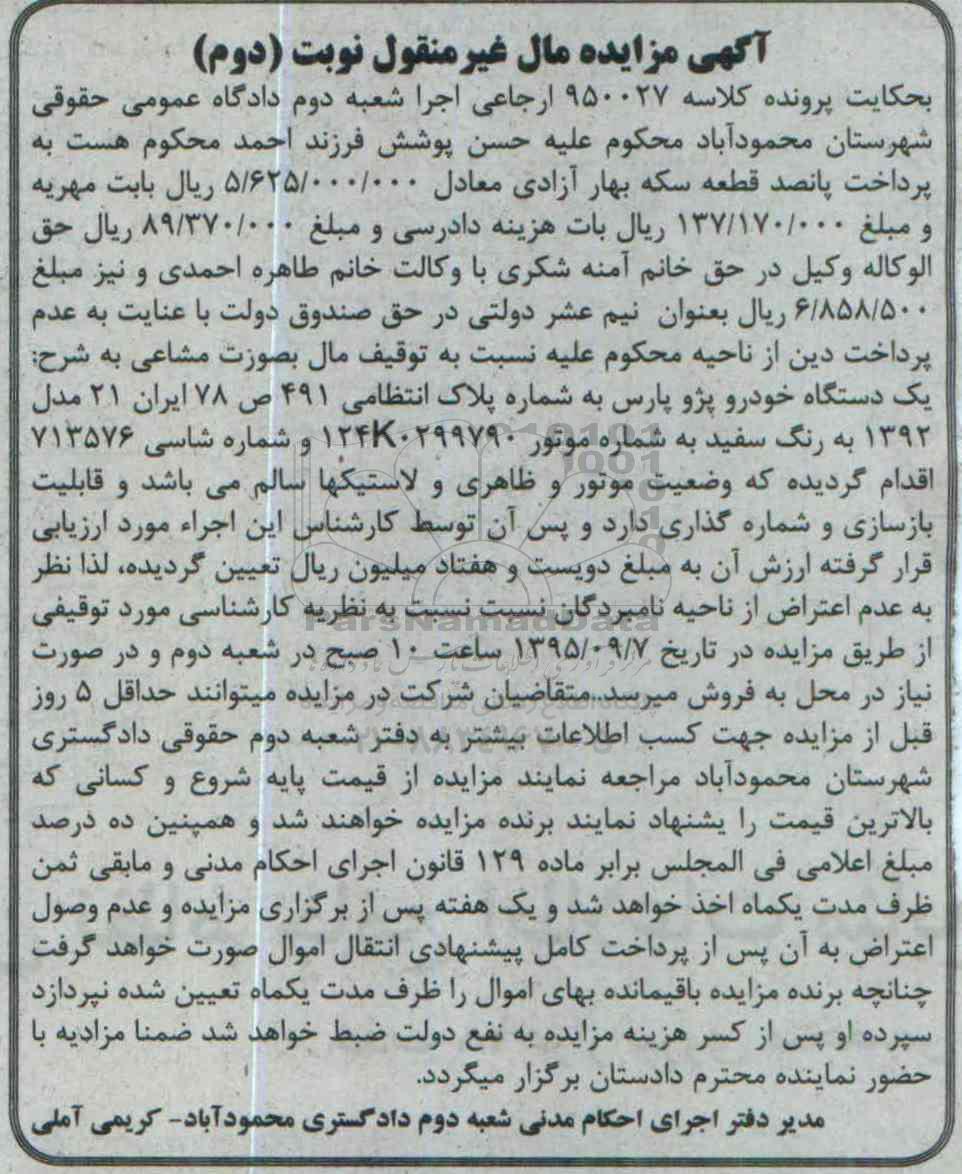 آگهی مزایده مال غیرمنقول نوبت (دوم)
بحکایت پرونده کلاسه ۹۵۰۰۲۷ ارجاعی اجرا شعبه دوم دادگاه عمومی حقوقی
شهرستان محمودآباد محکوم علیه حسن پوشش فرزند احمد محکوم هست به
پرداخت پانصد قطعه سکه بهار آزادی معادل ۵/۶۲۵/۰۰۰/۰۰۰ ریال بابت مهریه
و مبلغ ۱۳۷/۱۷۰/۰۰۰ ریال بات هزینه دادرسی و مبلغ ۸۹/۳۷۰/۰۰۰ ریال حق
الوکاله وکیل در حق خانم آمنه شکری با وکالت خانم طاهره احمدی و نیز مبلغ
۶/۸۵۸/۵۰۰ ریال بعنوان نیم عشر دولتی در حق صندوق دولت با عنایت به عدم
پرداخت دین از ناحیه محکوم علیه نسبت به توقیف مال بصورت مشاعی به شرح:
یک دستگاه خودرو پژو پارس به شماره پلاک انتظامی ۴۹۱ ص ۷۸ ایران ۲۱ مدل
۱۳۹۲ به رنگ سفید به شماره موتور ۱۲۴K۰۲۹۹۷۹۰ و شماره شاسی ۷۱۳۵۷۶
اقدام گردیده که وضعیت موتور و ظاهری و لاستیکها سالم می باشد و قابلیت
بازسازی و شماره گذاری دارد و پس آن توسط کارشناس این اجراء مورد ارزیابی
قرار گرفته ارزش آن به مبلغ دویست و هفتاد میلیون ریال تعیین گردیده، لذا نظر
به عدم اعتراض از ناحیه نامبردگان نسبت نسبت به نظریه کارشناسی مورد توقیفی
از طریق مزایده در تاریخ ۱۳۹۵/۰۹/۷ ساعت ۱۰ صبح در شعبه دوم و در صورت
نیاز در محل به فروش میرسد..متقاضیان شرکت در مزایده میتوانند حداقل ۵ روز
قبل از مزایده جهت کسب اطلاعات بیشتر به دفتر شعبه دوم حقوقی دادگستری
شهرستان محمودآباد مراجعه نمایند مزایده از قیمت پایه شروع و کسانی که
بالاترین قیمت را یشنهاد نمایند برنده مزایده خواهند شد و همپنین ده درصد
مبلغ اعلامی فی المجلس برابر ماده ۱۲۹ قانون اجرای احکام مدنی و مابقی ثمن
ظرف مدت یکماه اخذ خواهد شد و یک هفته پس از برگزاری مزایده و عدم وصول
اعتراض به آن پس از پرداخت کامل پیشنهادی انتقال اموال صورت خواهد گرفت
چنانچه برنده مزایده باقیمانده بهای اموال را ظرف مدت یکماه تعیین شده نپردازد
سپرده او پس از کسر هزینه مزایده به نفع دولت ضبط خواهد شد ضمنا مزادیه با
حضور نماینده محترم دادستان برگزار میگردد.
مدیر دفتر اجرای احکام مدنی شعبه دوم دادگستری محمودآباد- کریمی آملی
ParsNamadData